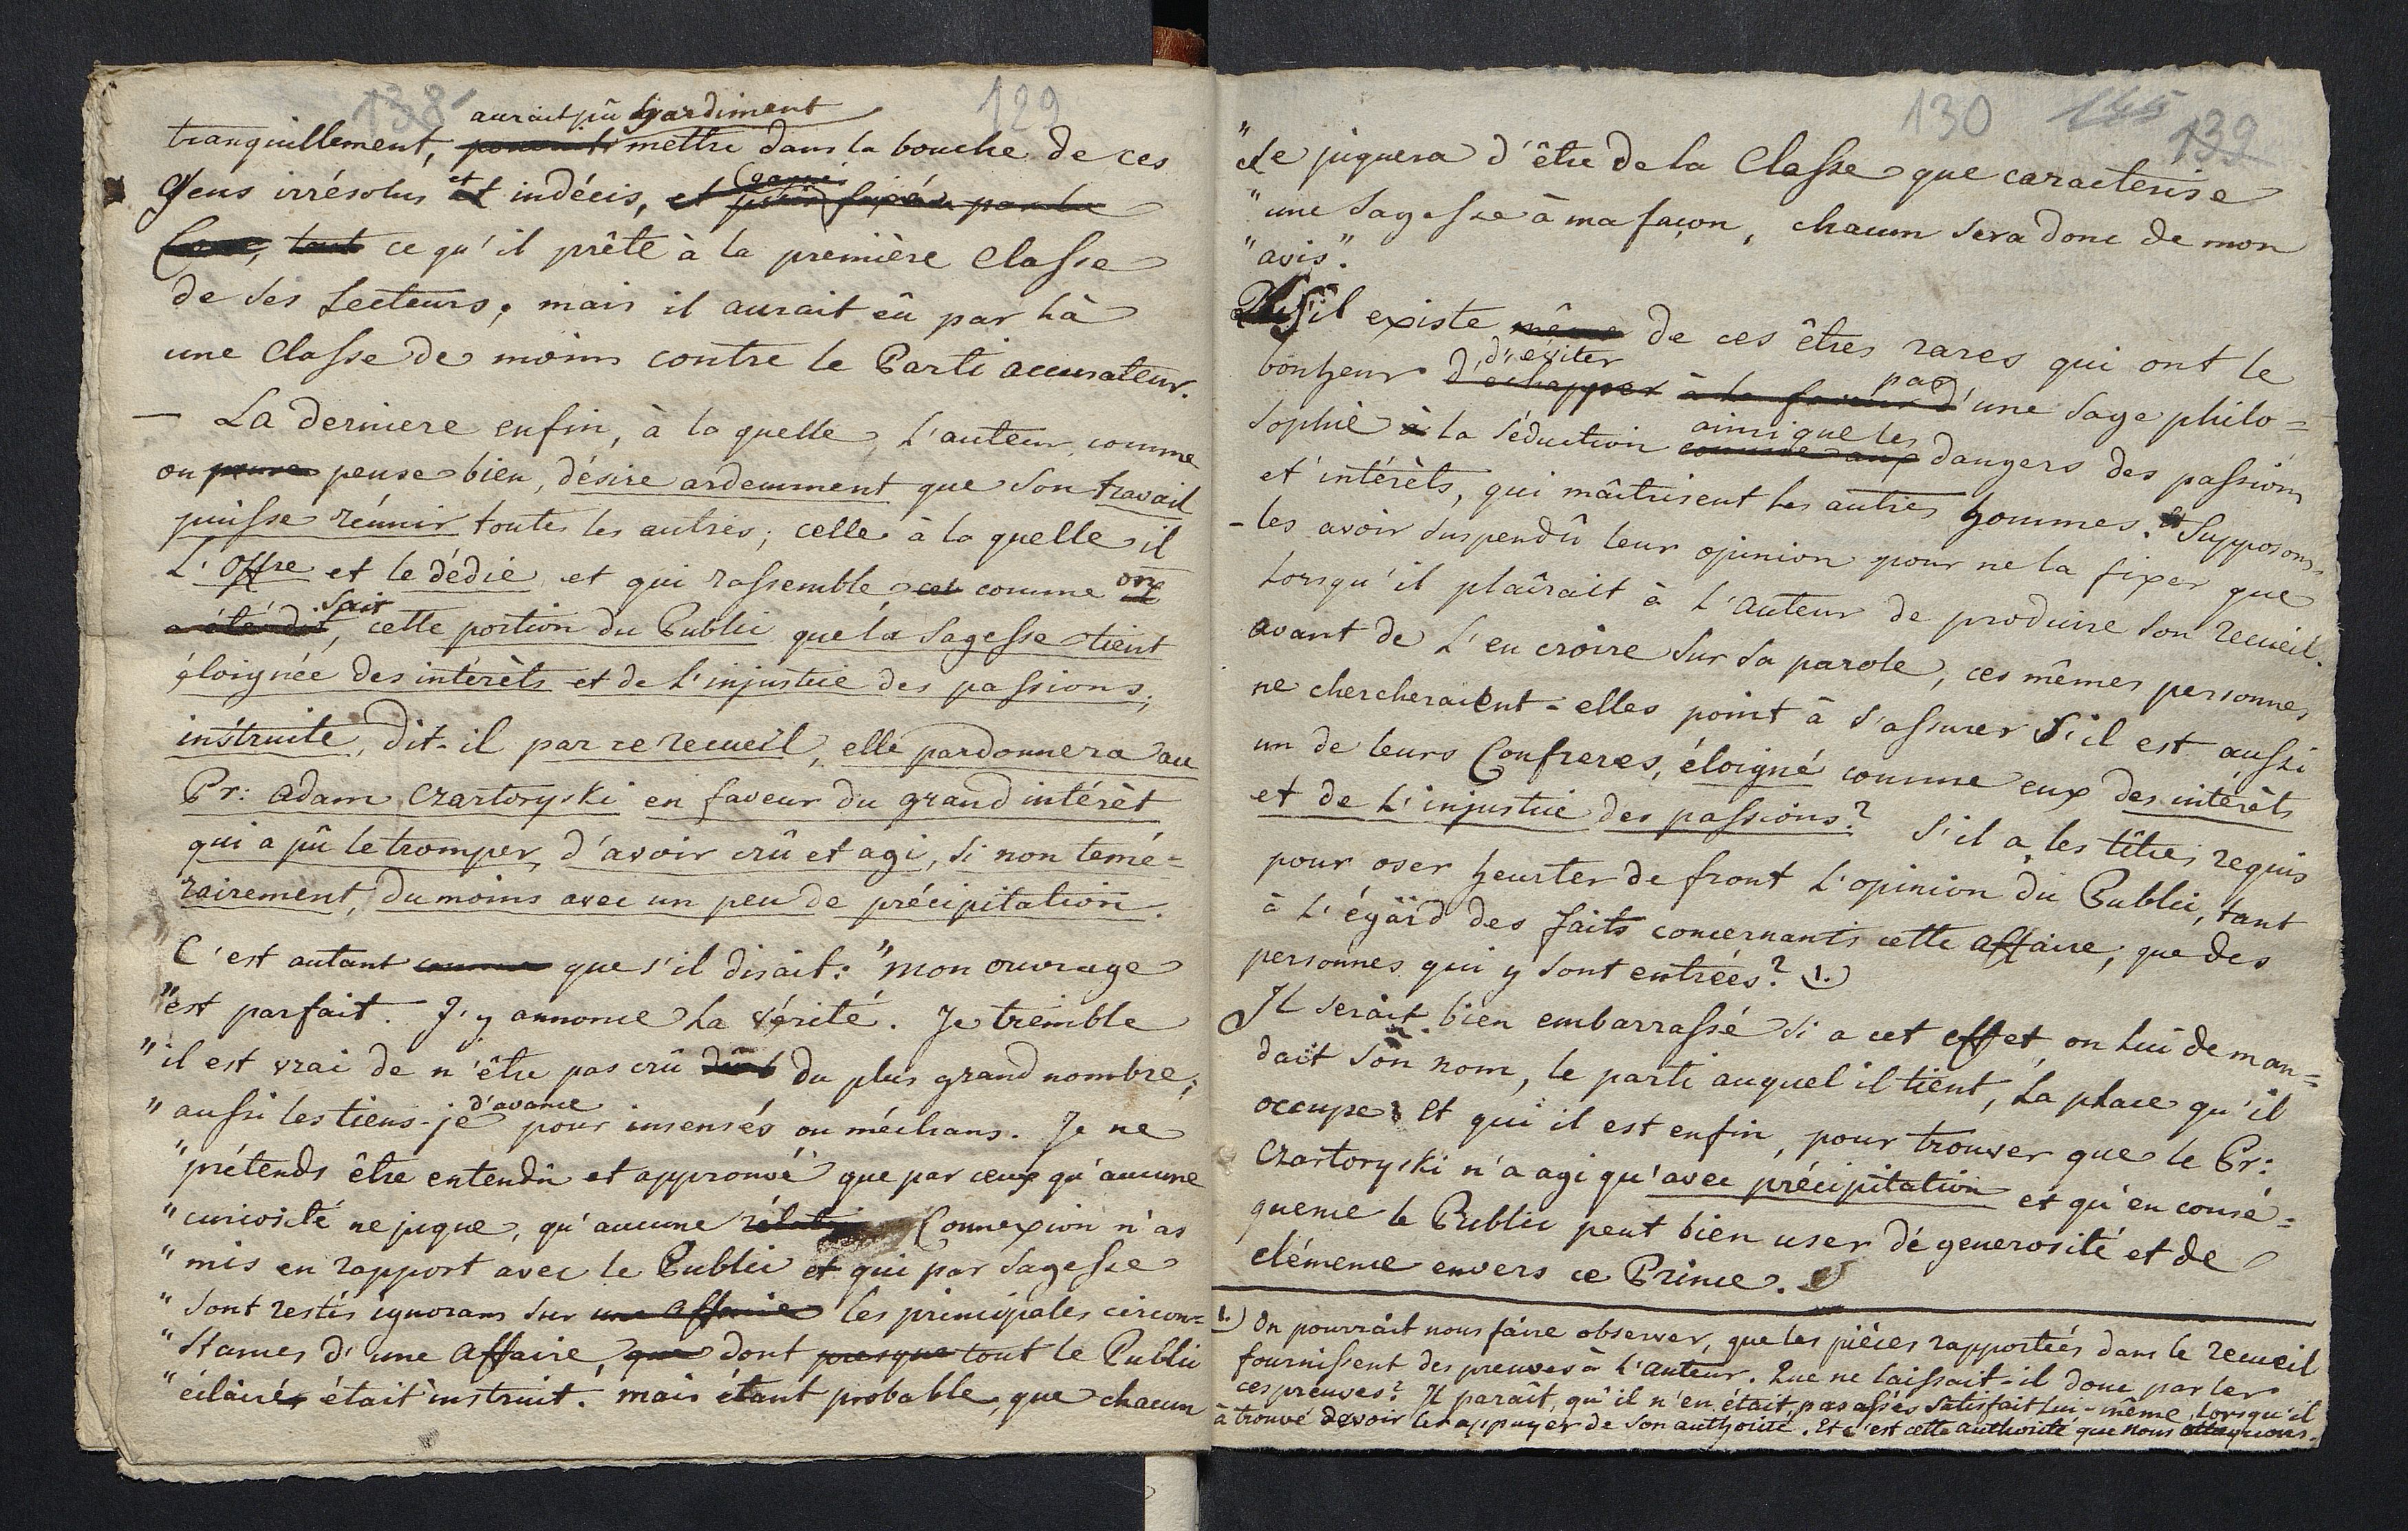 138 129
aurait pû hardiment
tranquillement, mettre dans la bouche de ces
Gens irrésolus et indécis, et
ce qu'il prête à la première Classe
de ses Lecteurs; mais il aurait êu par là
une Classe de moins contre le Parti accusateur.
— La derniere enfin, à la quelle, l'auteur, comme
on pense bien, désire ardemment que son travail
puisse réunir toutes les autres; celle à la quelle il
l'offre et le dédie, et qui rassemble, comme on
sait
a été dit, cette portion du Public que la sagesse tient
éloignée des intérèts et de l'injustice des passions;
instruite, dit-il par ce recueil, elle pardonnera au
Pr: Adam Czartoryski en faveur du grand intérèt
qui a pû le tromper, d'avoir crû et agi, si non temé=
rairement, du moins avec un peu de précipitation.
C'est autant comme que s'il disait: "mon ouvrage
"est parfait. J'y annonce la vérité. Je tremble
"il est vrai de n'être pas crû du plus grand nombre;
d'avance
"aussi les tiens-je pour insensés ou méchans. Je ne
"prétends être entendû et approuvé que par ceux qu'aucune
"curiosité ne pique, qu'aucune Connexion n'as
"mis en rapport avec le Public et qui par sagesse
"sont restés ignorans sur une affaire les principales circon=
"stances d'une affaire, que dont presque tout le Public
"éclairés était instruit. mais étant probable, que chacun
130 145 139
"se piquera d'être de la Classe que caracterise
"une sagesse à ma façon, chacun sera donc de mon
"avis".
S'il existe même de ces êtres rares qui ont le
d'éviter par
bonheur d'echapper à la faveur d'une sage philo=
ainsi que les
sophie à la séduction comme aux dangers des passions
et intérèts, qui maîtrisent les autres hommes. Supposons-
-les avoir suspendû leur opinion pour ne la fixer que
lorsqu'il plaîrait à l'Auteur de produire son recueil.
avant de l'en croire sur sa parole, ces mêmes personnes
ne chercheraient-elles point à s'assurer s'il est aussi
un de leurs Confreres, éloigné comme eux des intérèts
et de l'injustice des passions? s'il a les titres requis
pour oser heurter de front l'opinion du Public, tant
à l'égard des faits concernants cette affaire, que des
personnes qui y sont entrées? 1.)
Il serait bien embarrassé si a cet effet, on lui deman=
dait son nom, le parti auquel il tient, la place qu'il
occupe et qui il est enfin, pour trouver que le Pr:
Czartoryski n'a agi qu'avec précipitation et qu'en consé=
quence le Public peut bien user dé generosité et de
clémence envers ce Prince.
1.) On pourrait nous faire observer, que les pièces rapportées dans le recueil
fournissent des preuves à l'auteur. Que ne laissait-il donc parler
ces preuves? Il parait, qu'il n'en était pas assés satisfait lui-même, lorsqu'il
à trouvé devoir les appuyer de son authorité. Et c'est cette authorité que nous attaquons.